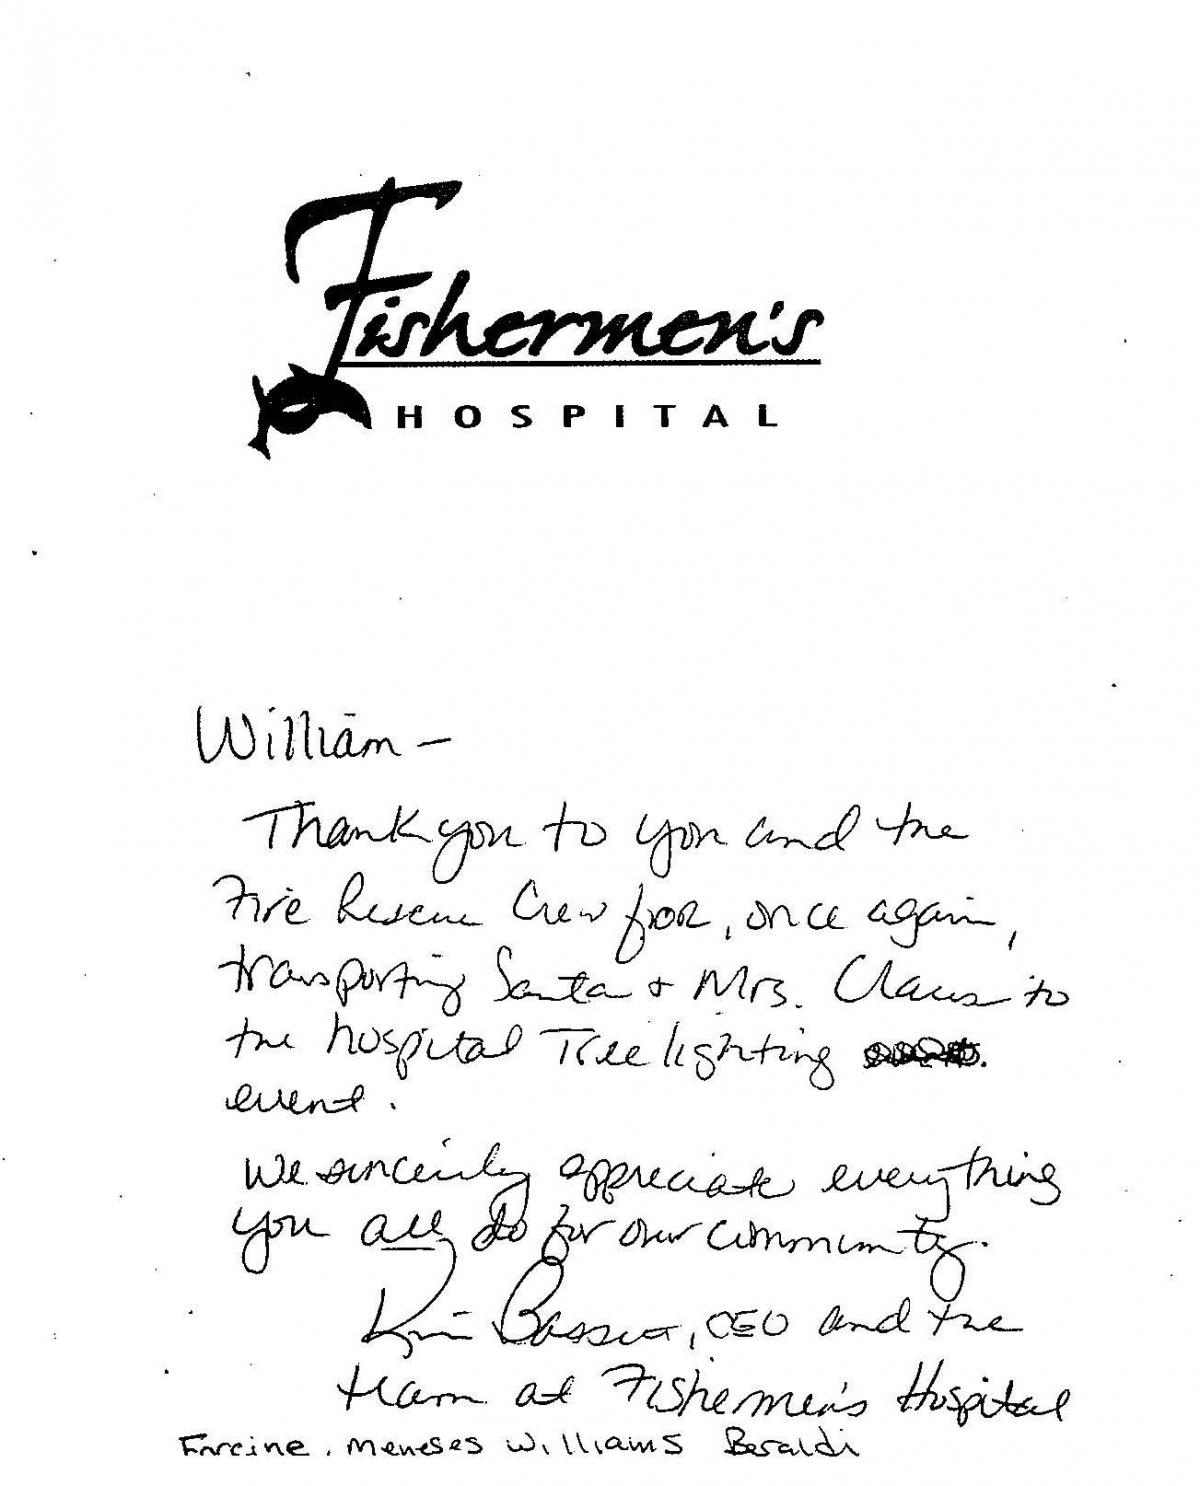 Fishermen's
HOSPITAL
William -
Thank you to you and the
Fire Rescue Crew for, once again,
transporting Santa + Mrs. Claus to
the hospital Tree lighting
event.
We sincerely appreciate everything
you all do for our community.
Kim Bassett, CEO and the
team at Fishermen's Hospital
Farcine, Meneses Williams Beraldi